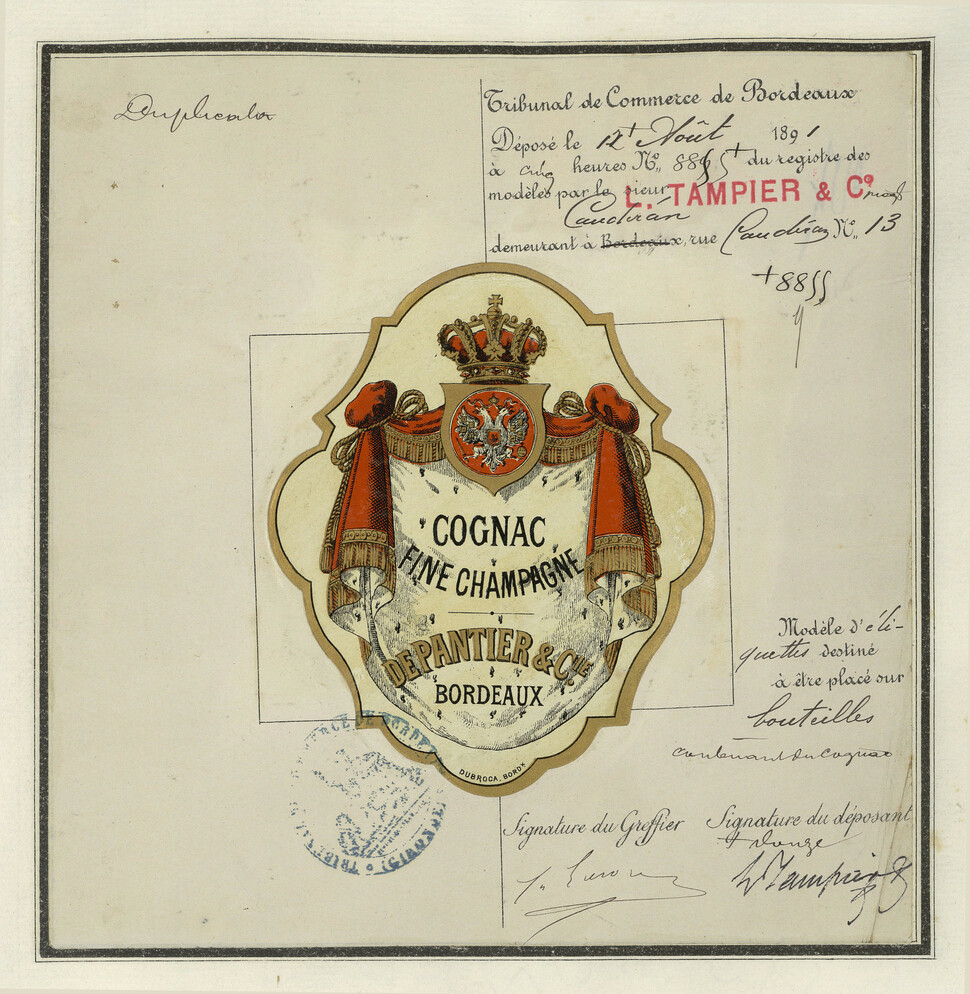 Duplicata
Tribunal de Commerce de Bordeaux
Déposé le 12+ Août 1891
à cinq heures No. 8855+ du registre des
modèles par le sieur L. TAMPIER & Co
Caudéran
demeurant à Bordeaux, rue Caudéran No. 13
+8855
COGNAC
FINE CHAMPAGNE
DEPANTIER & Cie
BORDEAUX
DUBROCA, BORDx
Modèle d'éti-
quettes destiné
à être placé sur
bouteilles
contenant du Cognac
Signature du Greffier Signature du déposant
+ douze
L. Tampier